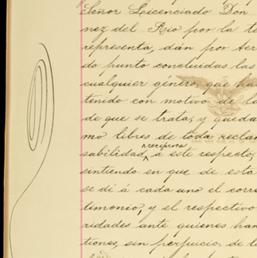 Señor Licenciado Don
nez del Rio por la te
representa, dán por ter
do punto concluidas las
cualquier género, que ha
tenido con motivo de la
de que se trata, y queda
mo libres de toda reclam
recíproca
sabilidad á este respecto,
sintiendo en que de esta
se dé á cada uno el corre
timonio, y el respectivo
ridades ante quienes han
tiones, sin perjuicio, de l